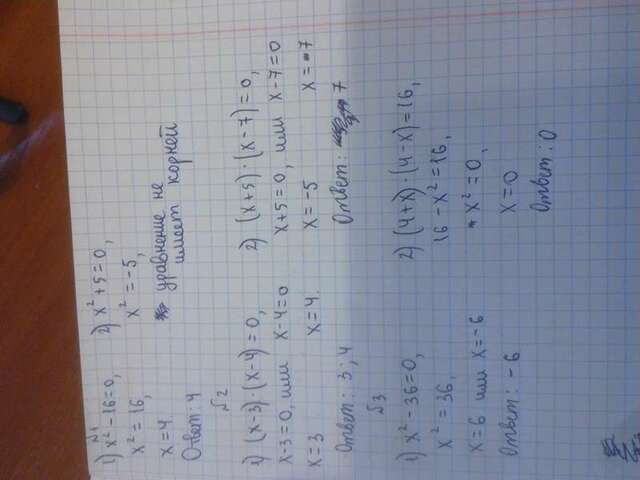 №1
1) x² - 16 = 0,
x² = 16,
x = 4.
Ответ: 4
2) x² + 5 = 0,
x² = -5,
уравнение не
имеет корней
№2
1) (x-3)·(x-4) = 0,
x-3=0, или x-4=0
x=3 x=4.
Ответ: 3; 4
2) (x+5)·(x-7)=0,
x+5=0, или x-7=0
x=-5 x=7
Ответ: 7
№3
1) x² - 36=0,
x² = 36,
x=6 или x=-6
Ответ: -6
2) (4+x)·(4-x)=16,
16-x²=16,
x²=0,
x=0
Ответ: 0